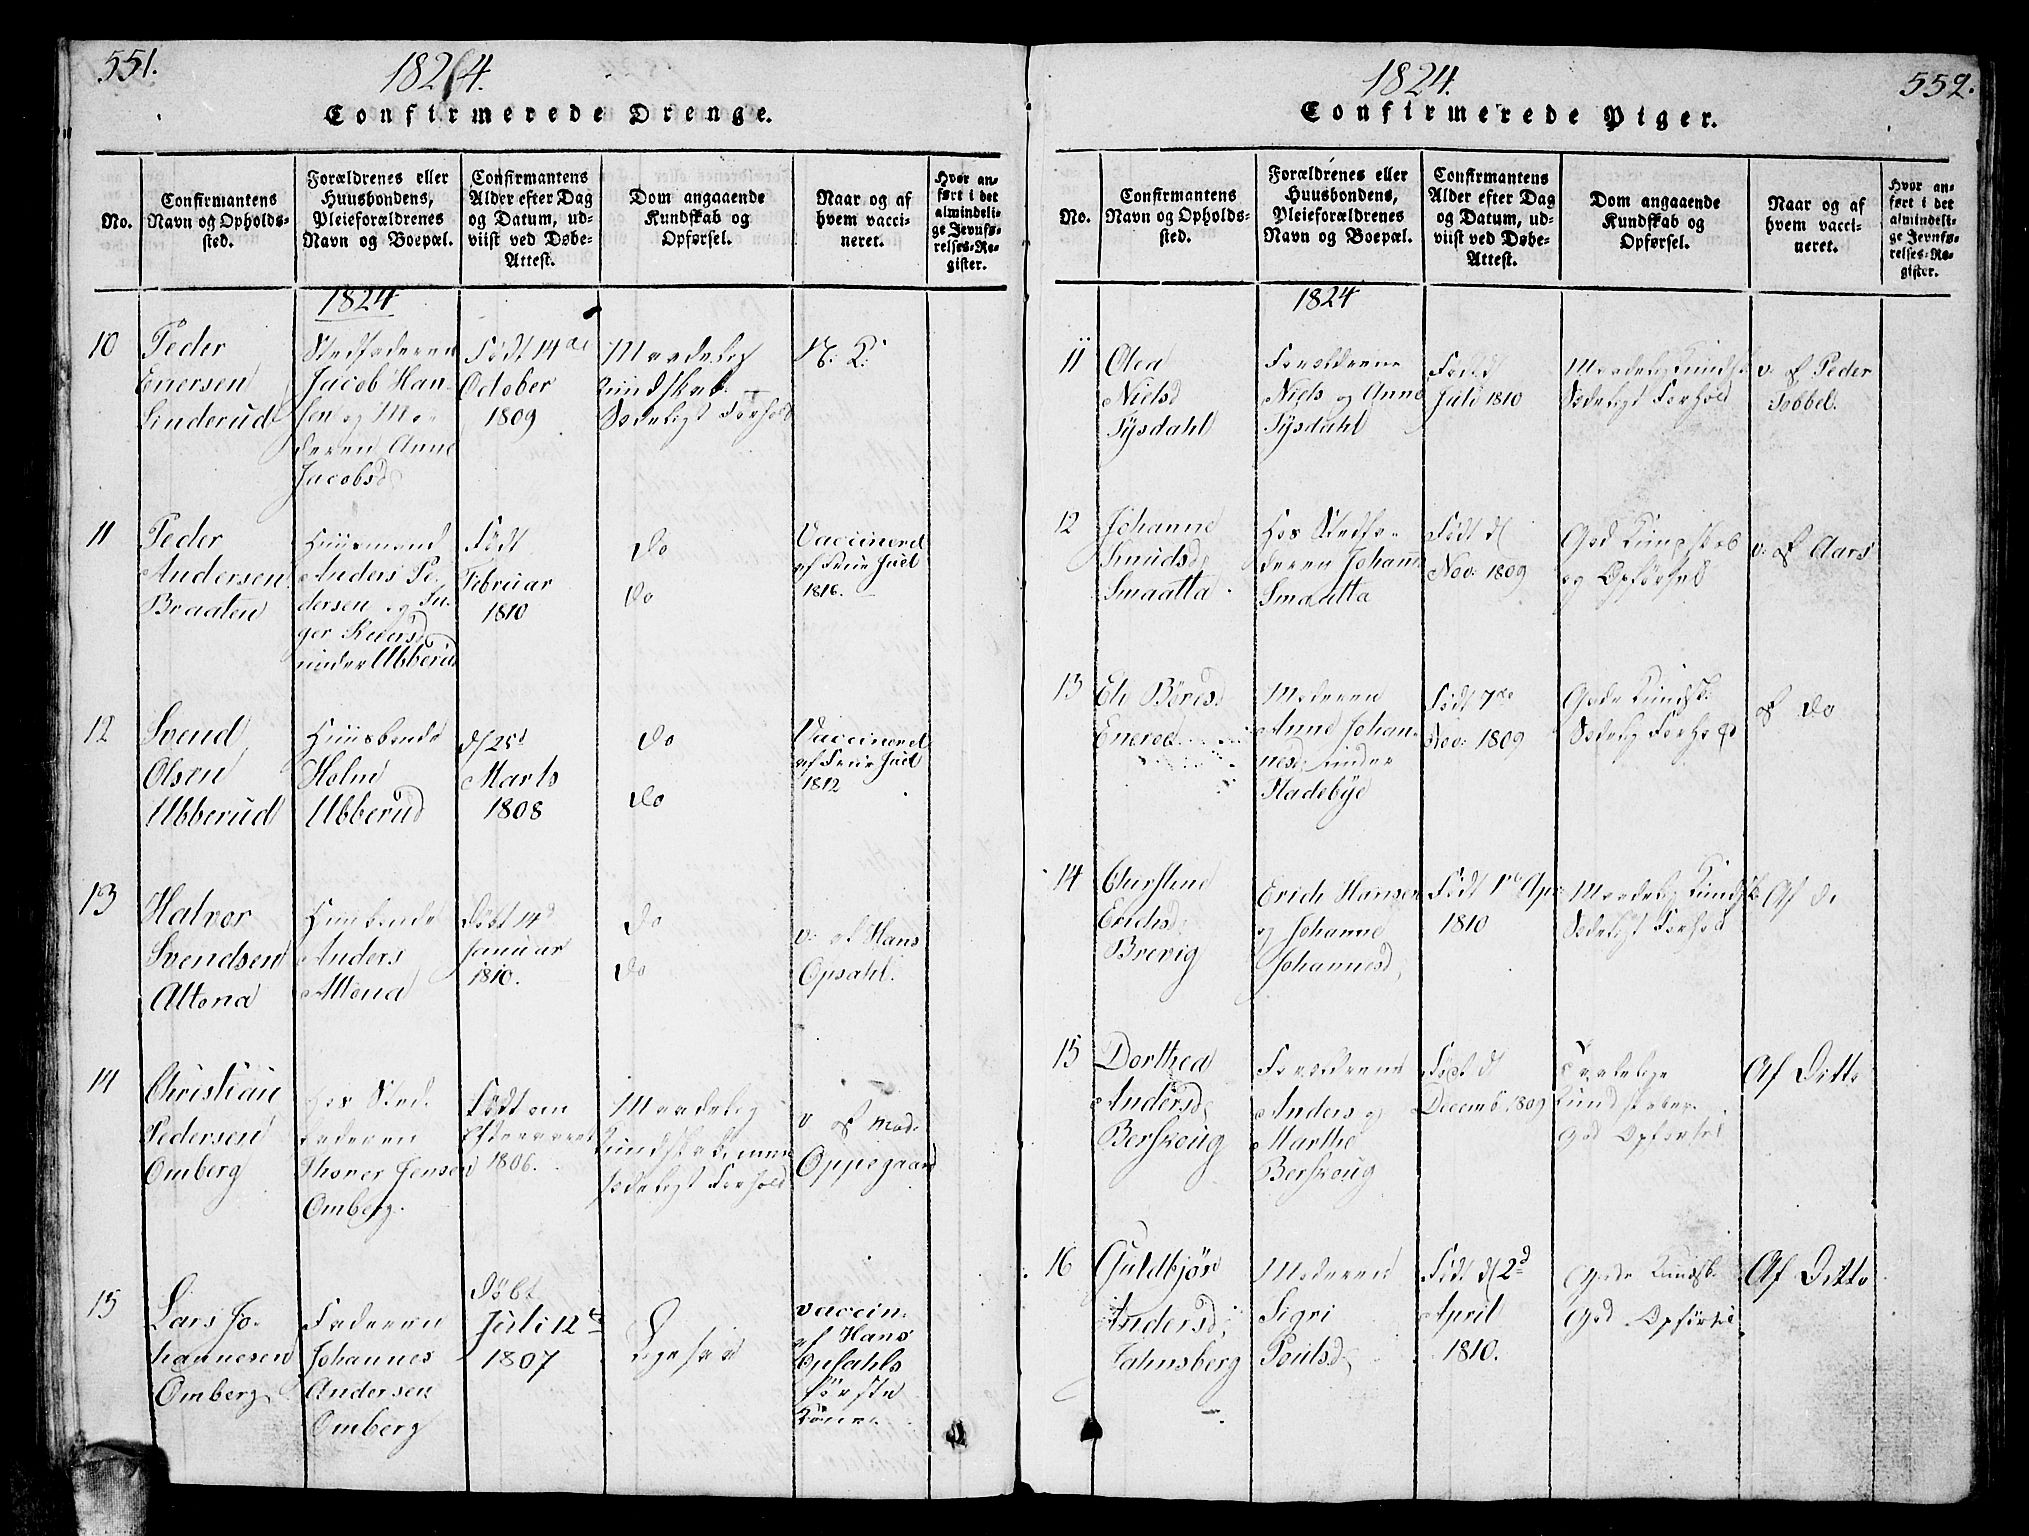 551.
1824.
Confirmerede Drenge.
No.
Confirmantens
Navn og Opholds-
sted.
Forældrenes eller
Huusbondens,
Pleieforældrenes
Navn og Boepæl.
Confirmantens
Alder efter Dag
og Datum, ud-
viist ved Døbe-
Attest.
Dom angaaende
Kundskab og
Opførsel.
Naar og af
hvem vacci-
neret.
Hvor an-
ført i det
almindeli-
ge Jevnfø-
relses-Re-
gister.
1824
10
Peder
Enersen
Linderud
Stedfaderen
Jacob Han-
sen og Mo-
deren Anne
Jacobsd
Født 14de
October
1809
Maadelig
Kundskab.
Sædeligt Forhold
N. K.
11
Peder
Andersen
Braaten
Huusmand
Anders Pe-
dersen og In-
ger Knudsd
under Ubberud
Født
Februar
1810
Do
Do
Vaccineret
af Frue Juel
1816.
12
Svend
Olsen
Ubberud
Huusbonde
Holm
Ubberud
d 25d
Marts
1808
Do
Do
Vaccineret
af Frue Juel
1812
13
Halvor
Svendsen
Altona
Huusbonde
Anders
Altona
Døbt 14d
Januar
1810.
Do
Do
v. af Hans
Opsahl.
14
Christian
Pedersen
Omberg
Hos Sted-
faderen
Thorer Jensen
Omberg.
Født om
Efteraaret
1806.
Maadelig
Kundskab, men
sædeligt Forhold
v af Mad.
Oppegaard
15
Lars Jo-
hannesen
Omberg
Faderen
Johannes
Andersen
Omberg
Døbt
Juli 12d
1807
Ligesaa
vaccin.
af Hans
Opsahls
første
Kone.
1824.
552.
Confirmerede Piger.
No.
Confirmantens
Navn og Opholds-
sted.
Forældrenes eller
Huusbondens,
Pleieforældrenes
Navn og Boepæl.
Confirmantens
Alder efter Dag
og Datum, ud-
viist ved Døbe-
Attest.
Dom angaaende
Kundskab og
Opførsel.
Naar og af
hvem vacci-
neret.
Hvor an-
ført i det
almindeli-
ge Jevnfø-
relses-Re-
gister.
1824
11
Olea
Nielsd
Sysdahl
Forældrene
Niels og Anne
Sysdahl
Født
Juli 1810
Maadelig Kundsk
Sædeligt Forhold
v. af Peder
Tobbel.
12
Johanne
Knudsd
Smaatta
Hos Stedfa-
deren Johann
Smaatta
Født d
Nov. 1809
God Kundskab
og Opførsel
v. af Aars
13
Eli Børesd
Enerød
Moderen
Anne Johan-
nesd, under
Stadebye
Født 7de
Nov. 1809
Gode Kundsk
Sædelig Forhold
af Do
14
Christine
Erichsd
Brevig
Erich Hansen
og Johanne
Johannesd,
Født 1d Apr
1810
Maadelig Kundsk
Sædeligt Forhold
Af do
15
Dorthea
Andersd,
Berskoug
Forældrene
Anders og
Marthe
Berskoug
Født d
Decemb. 1809
Kundskaber
God Opførsel
Af Ditto
16
Guldbjør
Andersd,
Jahnsberg
Moderen
Sigri
Poulsd,
Født d 2d
April
1810.
Gode Kundsk.
God Opførsel
Af Ditto